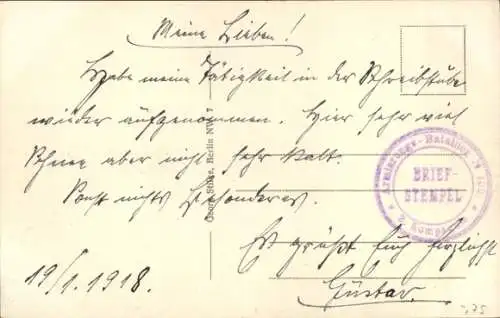 Meine Lieben!
Habe meine Tätigkeit in der Schreibstube
wieder aufgenommen. Hier sehr viel
Schnee aber nicht sehr kalt.
Sonst nichts besonderes.
Es grüßt Euch herzlichst
Gustav.
19/1. 1918.
Georg Stilke, Berlin NW. 7
Armierungs-Bataillon
BRIEF-
STEMPEL
2. Komp.